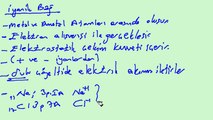 İyonik Bağ
- Metal ve Ametal Atomları arasında oluşur.
- Elektron alışverişi ile gerçekleşir
- Elektrostatik çekim kuvveti içerir.
(+ ve - iyonlardan)
- Sulu çözeltide elektrik akımını iletirler
- 11Na: 3p, 1A Na+1
17Cl: 3p, 7A Cl-1